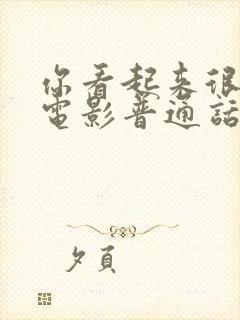 你看起来很
電影普通話
夕頁